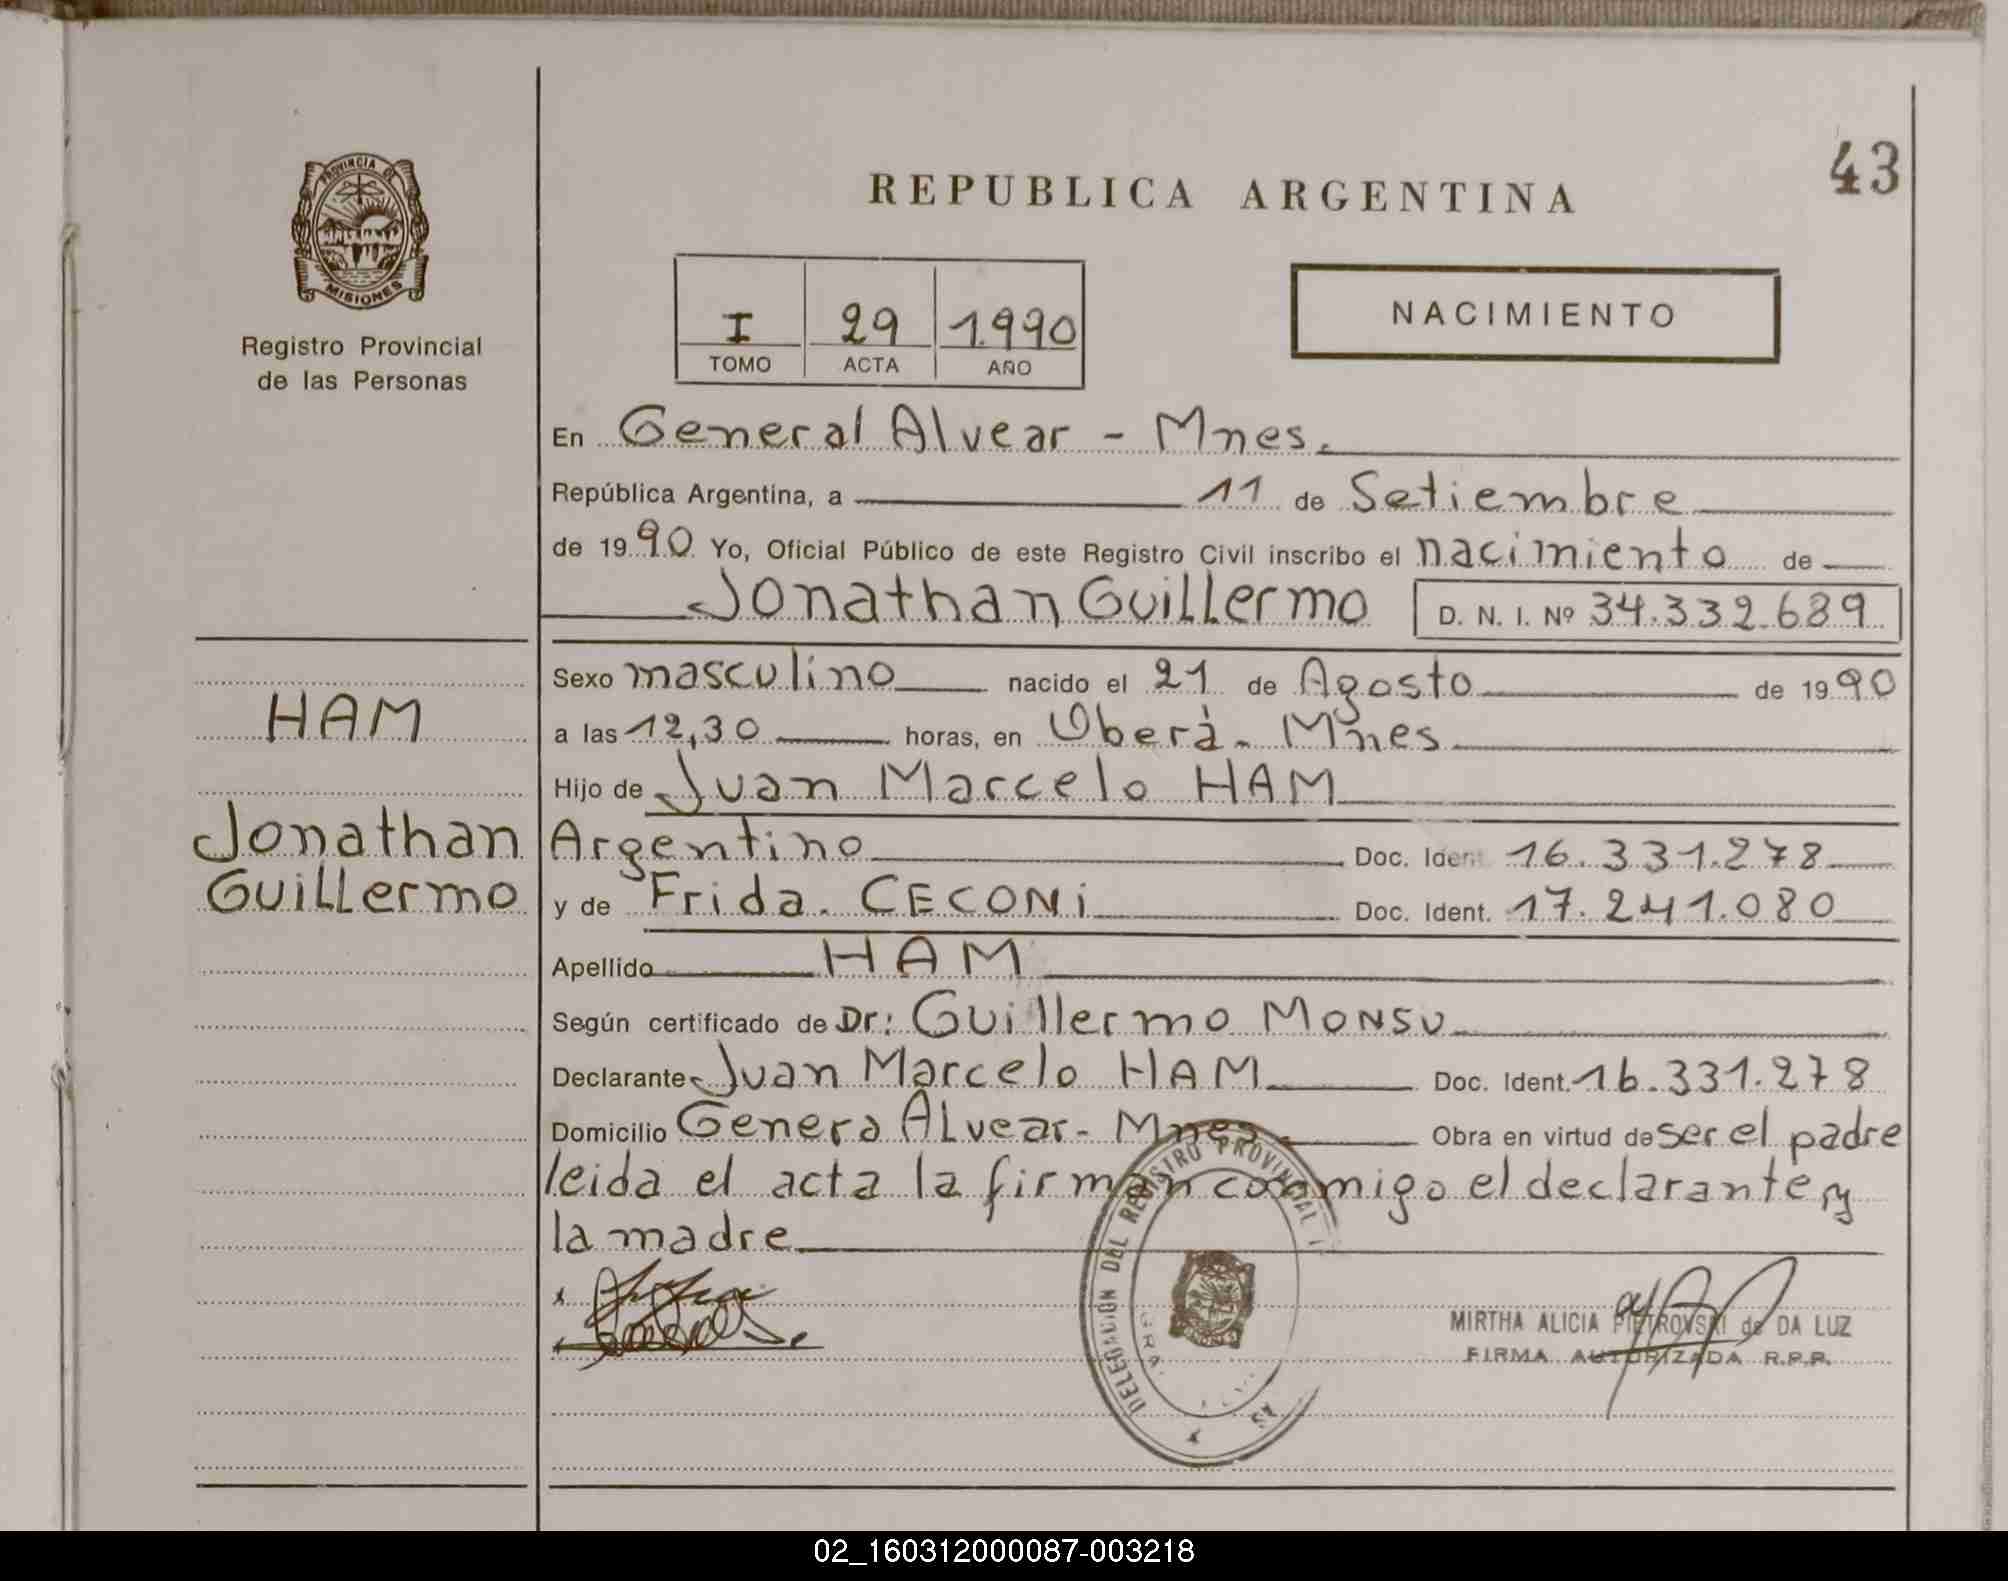 PROVINCIA DE
MISIONES
Registro Provincial
de las Personas
HAM
Jonathan
Guillermo
43
REPUBLICA ARGENTINA
I 29 1.990
TOMO ACTA AÑO
NACIMIENTO
En General Alvear - Mnes.
República Argentina, a 11 de Setiembre
de 1990 Yo, Oficial Público de este Registro Civil inscribo el nacimiento de
Jonathan Guillermo D. N. I. Nº 34.332.689
Sexo masculino nacido el 21 de Agosto de 1990
a las 12,30 horas, en Oberá - Mnes
Hijo de Juan Marcelo HAM
Argentino Doc. Ident. 16.331.278
y de Frida. CECONi Doc. Ident. 17.241.080
Apellido HAM
Según certificado de Dr: Guillermo MONSU
Declarante Juan Marcelo HAM Doc. Ident. 16.331.278
Domicilio Genera Alvear - Mnes. Obra en virtud de ser el padre
leida el acta la firman conmigo el declarante y
la madre
DELEGACIÓN DEL REGISTRO PROVINCIAL
MIRTHA ALICIA PIETROVSKI de DA LUZ
FIRMA AUTORIZADA R.P.P.
02_160312000087-003218